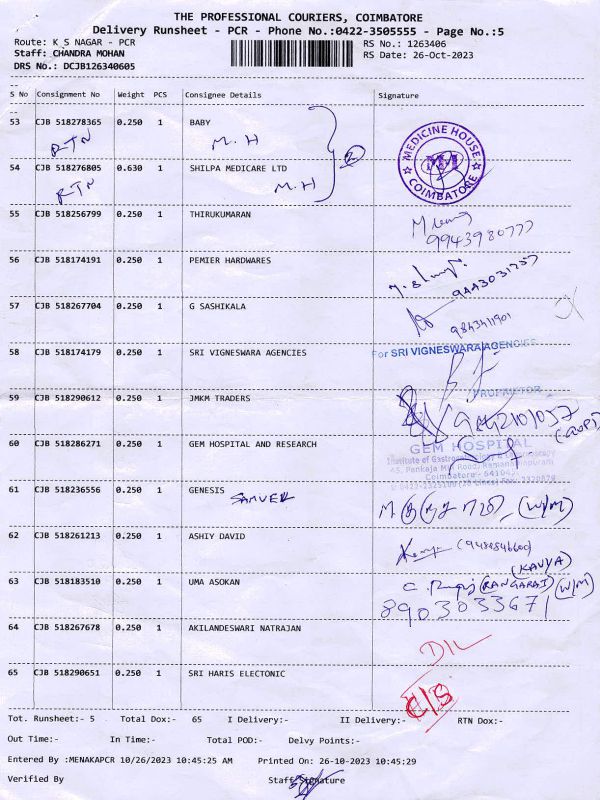 THE PROFESSIONAL COURIERS, COIMBATORE
Delivery Runsheet - PCR - Phone No.:0422-3505555 - Page No.:5
Route: K S NAGAR - PCR RS No.: 1263406
Staff: CHANDRA MOHAN RS Date: 26-Oct-2023
DRS No.: DCJB126340605
S No Consignment No Weight PCS Consignee Details Signature
53 CJB 518278365 0.250 1 BABY
RTN M.H
MEDICINE HOUSE
COIMBATORE
54 CJB 518276805 0.630 1 SHILPA MEDICARE LTD
RTN M.H
55 CJB 518256799 0.250 1 THIRUKUMARAN
9943980777
56 CJB 518174191 0.250 1 PEMIER HARDWARES
57 CJB 518267704 0.250 1 G SASHIKALA
9843411901
58 CJB 518174179 0.250 1 SRI VIGNESWARA AGENCIES
For SRI VIGNESWARA AGENCIES
PROPRIETOR
59 CJB 518290612 0.250 1 JMKM TRADERS
60 CJB 518286271 0.250 1 GEM HOSPITAL AND RESEARCH
GEM HOSPITAL
45, Pankaja Mill Road, Ramanathapuram
61 CJB 518236556 0.250 1 GENESIS
(W/M)
62 CJB 518261213 0.250 1 ASHIY DAVID
(KAVYA)
63 CJB 518183510 0.250 1 UMA ASOKAN
(RANGARAJ) (W/M)
8903033671
64 CJB 518267678 0.250 1 AKILANDESWARI NATRAJAN
D/L
65 CJB 518290651 0.250 1 SRI HARIS ELECTONIC
C/S
Tot. Runsheet:- 5 Total Dox:- 65 I Delivery:- II Delivery:- RTN Dox:-
Out Time:- In Time:- Total POD:- Delvy Points:-
Entered By :MENAKAPCR 10/26/2023 10:45:25 AM Printed On: 26-10-2023 10:45:29
Verified By Staff Signature